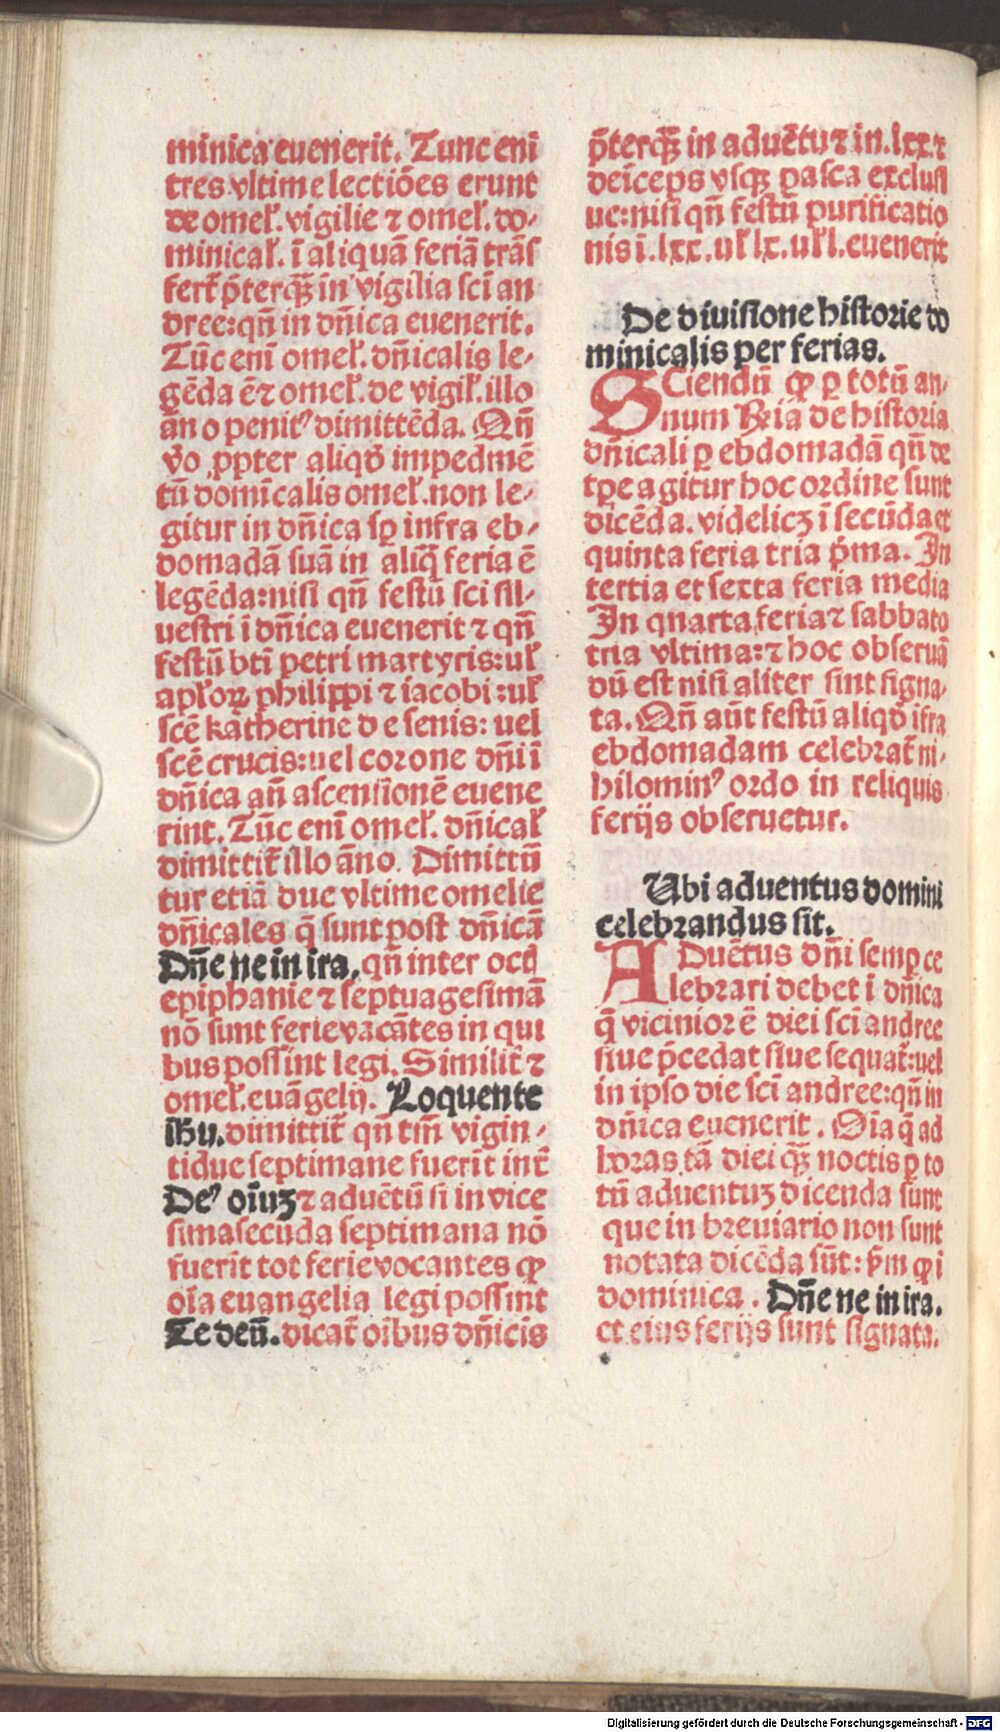 minica euenerit. Tunc eni
tres vltime lectiões erunt
de omeł. vigilie ⁊ omeł. do-
minicał. ī aliquā feriā trāſ
fert̄ p̄terqꝫ̄ in vigilia ſci an
dree:qn̄ in dn̄ica euenerit.
Tūc enī omeł. dn̄icalis le-
gēda ē⁊ omeł. de vigił. illo
an̄ o penitꝰ dimittēda. Qn̄
v̄o ꝓpter aliqd̄ impedmē
tū domīcalis omeł. non le-
gitur in dn̄ica ſꝑ infra eb-
domadā ſuā in aliq̄ feria ē
legēda:niſi qn̄ feſtū ſci ſil-
ueſtri ī dn̄ica euenerit ⁊ qn̄
feſtū btī petri martyris:uł
apłoꝝ philippi ⁊ iacobi:uł
ſcē katherine de ſenis: uel
ſcē crucis:uel corone dn̄i ī
dn̄ica an̄ aſcenſionē euene
rint. Tūc enī omeł. dn̄icał
dimittit̄ illo āno. Dimittū
tur etiā due vltime omelie
dn̄icales q̄ ſunt poſt dn̄icā
Dn̄e ne in ira. qn̄ inter octā
epiphanie ⁊ ſeptuageſimā
nō ſunt ferie vacātes in qui
bus poſſint legi. Similit̄ ⁊
omeł. euāgelij. Loquente
ihū. dimittit̄ qn̄ tm̄ vigin-
tidue ſeptimane fuerīt int̄
Deꝰ oīuꝫ ⁊ aduētū ſi in vice
ſimaſecūda ſeptimana nō
fuerīt tot ferie vocantes ꝙ
oīa euangelia legi poſſint
Te deū. dicat̄ oībus dn̄icis
p̄terqꝫ̄ in aduētu ⁊ in .lxx. ⁊
deīceps vſqꝫ paſca excluſi
ue:niſi qn̄ feſtū purificatio
nis ī .lxx. uł lx. uł l. euenerit
De diuiſione hiſtorie do
minicalis per ferias.
SCiendū ꝙ ꝑ totū an-
num ꝶia de hiſtoria
dn̄icali ꝑ ebdomadā qn̄ de
tꝑe agitur hoc ordine ſunt
dicēda. videlicꝫ ī ſecūda et
quinta feria tria p̄ma. In
tertia et ſexta feria media
In quarta feria ⁊ ſabbato
tria vltima: ⁊ hoc obſeruā
dū eſt niſi aliter ſint ſigna-
ta. Qn̄ aūt feſtū aliqd̄ īfra
ebdomadam celebrat̄ ni-
hilominꝰ ordo in reliquis
ferijs obſeruetur.
Ubi aduentus domini
celebrandus ſit.
ADuētus dn̄i ſemꝑ ce
lebrari debet ī dn̄ica
q̄ vicinior ē diei ſci andree
ſiue p̄cedat ſiue ſequat̄:uel
in ipſo die ſci andree:qn̄ in
dn̄ica euenerit. Oīa q̄ ad
horas tā diei qꝫ̄ noctis ꝑ to
tū aduentuꝫ dicenda ſunt
que in breuiario non ſunt
notata dicēda ſūt: p̄m ꝙ i
dominica. Dn̄e ne in ira.
et eius ferijs ſunt ſignata.
Digitalisierung gefördert durch die Deutsche Forschungsgemeinschaft - DFG